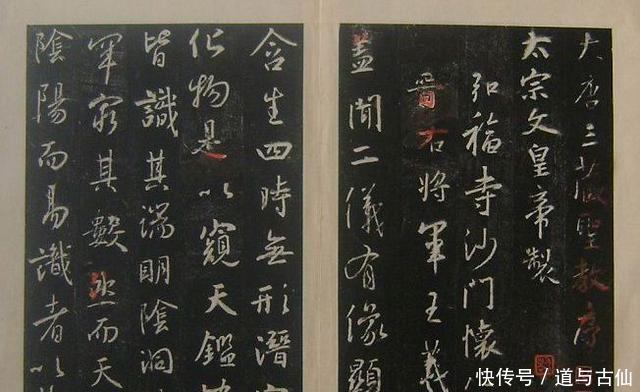 大唐三藏聖教序
太宗文皇帝製
弘福寺沙門懷
晉右將軍王羲
蓋聞二儀有像顯
含生四時無形潛
化物是以窺天鑑
皆識其端明陰洞
罕窮其數然而天
陰陽而易識者以
快传号 / 道与古仙